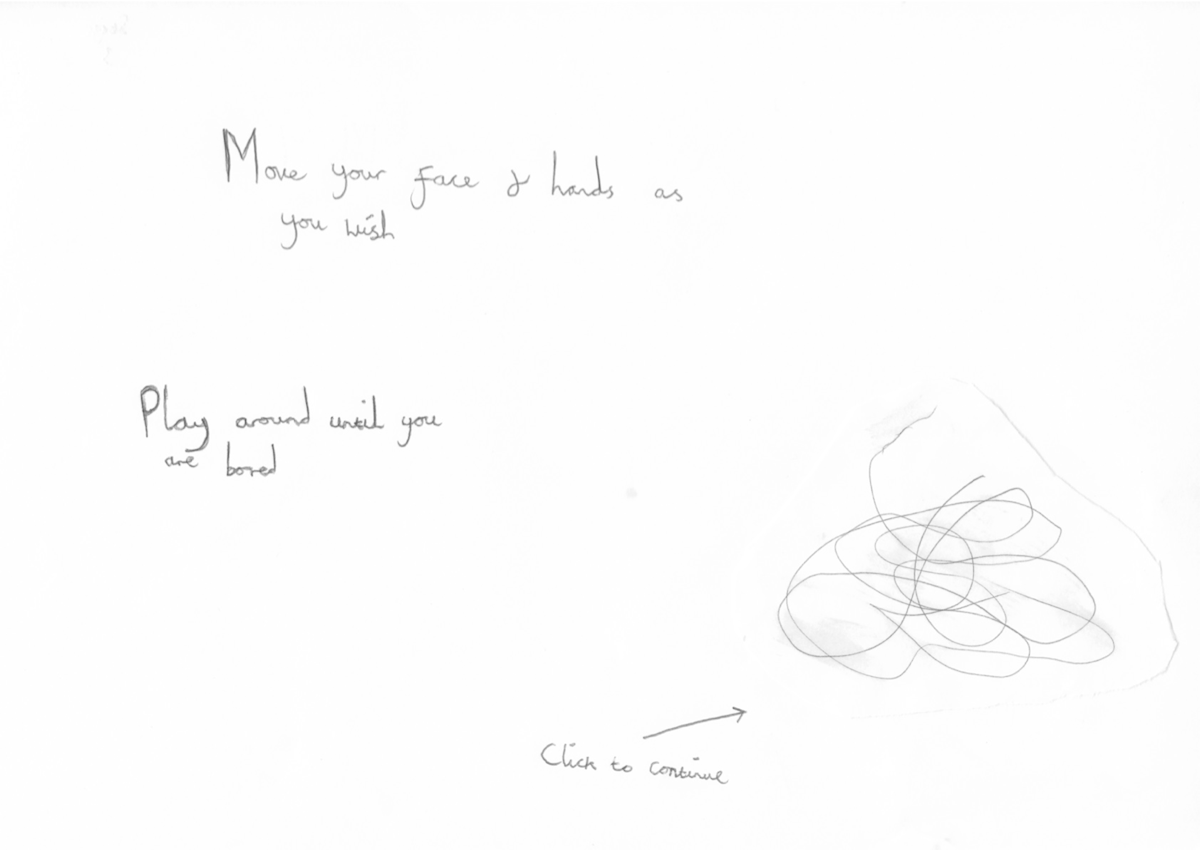 Move your face & hands as
you wish
Play around until you
are bored
Click to continue